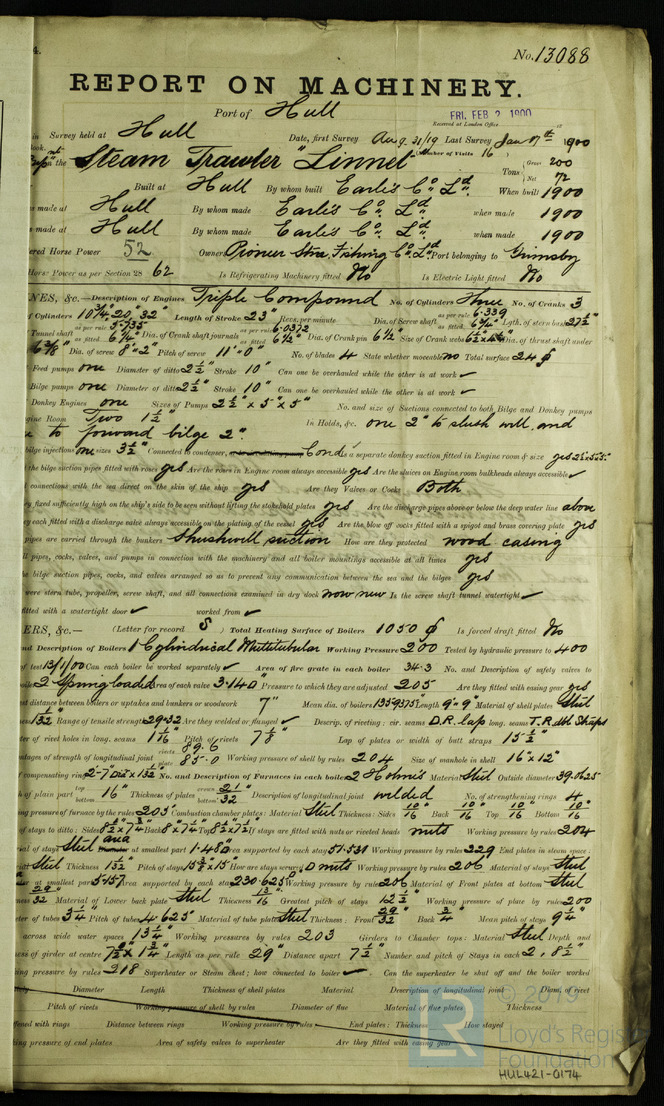 4.
No. 13088
REPORT ON MACHINERY.
Port of Hull
FRI. FEB 2 1900
Received at London Office
in Survey held at Hull Date, first Survey Aug. 31/19 Last Survey Jan 17th 1900
book. Number of Visits 16
on the Steam Trawler "Linnet" Tons Gross 200 Net 72
Built at Hull By whom built Earle's Co. Ld. When built 1900
s made at Hull By whom made Earle's Co. Ld. when made 1900
s made at Hull By whom made Earle's Co. Ld. when made 1900
ered Horse Power 52 Owners Pioneer Steam Fishing Co. Ld. Port belonging to Grimsby
Horse Power as per Section 28 62 Is Refrigerating Machinery fitted No Is Electric Light fitted No
NES, &c.—Description of Engines Triple Compound No. of Cylinders Three No. of Cranks 3
f Cylinders 10 3/4", 20", 32" Length of Stroke 23" Revs. per minute Dia. of Screw shaft as per rule 6.339 as fitted 6 3/4" Lgth. of stern bush 27 1/2"
Tunnel shaft as per rule 5.735 as fitted 6 1/4" Dia. of Crank shaft journals as per rule 6.0372 as fitted 6 1/2" Dia. of Crank pin 6 1/2" Size of Crank webs Dia. of thrust shaft under
6 3/8" Dia. of screw 8' 2" Pitch of screw 11' 0" No. of blades 4 State whether moveable no Total surface 24
Feed pumps one Diameter of ditto 2 1/2" Stroke 10" Can one be overhauled while the other is at work ✓
Bilge pumps one Diameter of ditto 2 1/2" Stroke 10" Can one be overhauled while the other is at work ✓
Donkey Engines one Sizes of Pumps 2 1/2" x 5" x 5" No. and size of Suctions connected to both Bilge and Donkey pumps
gine Room Two 1 1/2" In Holds, &c. one 2" to slush well and
to forward bilge 2".
bilge injections one sizes 3 1/2" Connected to condenser, Cond Is a separate donkey suction fitted in Engine room & size yes
the bilge suction pipes fitted with roses yes Are the roses in Engine room always accessible yes Are the sluices on Engine room bulkheads always accessible ✓
connections with the sea direct on the skin of the ship yes Are they Valves or Cocks Both
y fixed sufficiently high on the ship's side to be seen without lifting the stokehold plates yes Are the discharge pipes above or below the deep water line above
y each fitted with a discharge valve always accessible on the plating of the vessel yes Are the blow off cocks fitted with a spigot and brass covering plate yes
pipes are carried through the bunkers Slushwell suction How are they protected wood casing
ll pipes, cocks, valves, and pumps in connection with the machinery and all boiler mountings accessible at all times yes
e bilge suction pipes, cocks, and valves arranged so as to prevent any communication between the sea and the bilges yes
were stern tube, propeller, screw shaft, and all connections examined in dry dock now new Is the screw shaft tunnel watertight ✓
fitted with a watertight door ✓ worked from ✓
ERS, &c.— (Letter for record S) Total Heating Surface of Boilers 1050 Is forced draft fitted No
nd Description of Boilers 1 Cylindrical Multitubular Working Pressure 200 Tested by hydraulic pressure to 400
of test 13/1/00 Can each boiler be worked separately ✓ Area of fire grate in each boiler 34.3 No. and Description of safety valves to
boiler 2 Spring loaded Area of each valve 3.140" Pressure to which they are adjusted 205 Are they fitted with easing gear yes
st distance between boilers or uptakes and bunkers or woodwork 7" Mean dia. of boilers 135.9375 Length 9' 9" Material of shell plates Steel
ess 1 3/32 Range of tensile strength 29.32 Are they welded or flanged ✓ Descrip. of riveting: cir. seams D.R. lap long. seams T.R. dbl Straps
er of rivet holes in long. seams 1 1/16" Pitch of rivets 7 1/8" Lap of plates or width of butt straps 15 1/2"
ntages of strength of longitudinal joint rivets 89.6 plate 85.0 Working pressure of shell by rules 204 Size of manhole in shell 16" x 12"
f compensating ring 2-7 Dia x 1 3/32" No. and Description of Furnaces in each boiler 2 Holmes Material Steel Outside diameter 39.0625
h of plain part top bottom 16" Thickness of plates crown bottom 21/32 Description of longitudinal joint welded No. of strengthening rings 4
ing pressure of furnace by the rules 205 Combustion chamber plates: Material Steel Thickness: Sides 10/16 Back 10/16 Top 10/16 Bottom 10/16
of stays to ditto: Sides Back Top If stays are fitted with nuts or riveted heads nuts Working pressure by rules 204
al of stays Steel area at smallest part 1.480" Area supported by each stay 51.531 Working pressure by rules 229 End plates in steam space:
rial Steel Thickness 1 1/32 Pitch of stays 15 3/8" x 15" How are stays secured D nuts Working pressure by rules 206 Material of stays Steel
at smallest part 5.157 Area supported by each stay 230.6250 Working pressure by rules 206 Material of Front plates at bottom Steel
ness 29/32 Material of Lower back plate Steel Thickness 13/16 Greatest pitch of stays 12 1/2" Working pressure of plate by rules 200
eter of tubes 3 1/4 Pitch of tubes 4.625 Material of tube plates Steel Thickness: Front 29/32 Back 3/4 Mean pitch of stays 9 1/4"
across wide water spaces 13 1/4" Working pressures by rules 203 Girders to Chamber tops: Material Steel Depth and
ess of girder at centre Length as per rule 29" Distance apart 7 1/2" Number and pitch of Stays in each 2, 8 1/2"
ing pressure by rules 218 Superheater or Steam chest; how connected to boiler ✓ Can the superheater be shut off and the boiler worked
Diameter Length Thickness of shell plates Material Description of longitudinal joint Diam. of rivet
Pitch of rivets Working pressure of shell by rules Diameter of flue Material of flue plates Thickness
ffened with rings Distance between rings Working pressure by rules End plates: Thickness How stayed
ing pressure of end plates Area of safety valves to superheater Are they fitted with easing gear
© 2019
LR
Lloyd's Regis
Foundation
HUL421-0174